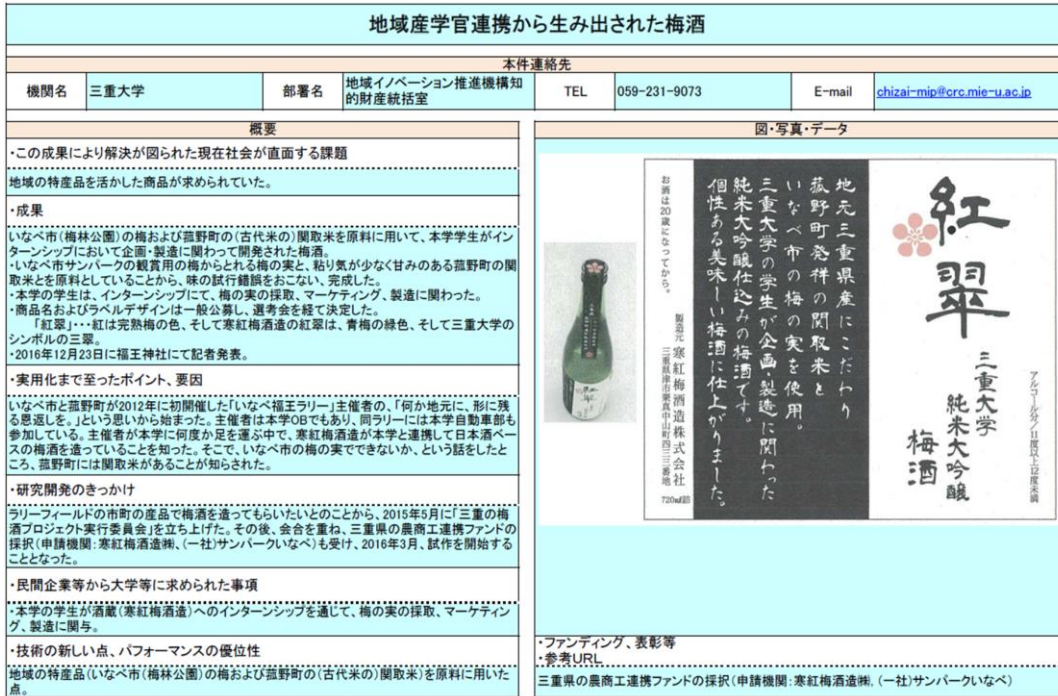 地域産学官連携から生み出された梅酒
本件連絡先
機関名
三重大学
部署名
地域イノベーション推進機構知
的財産統括室
TEL
059-231-9073
E-mail
chizai-mip@crc.mie-u.ac.jp
概要
・この成果により解決が図られた現在社会が直面する課題
地域の特産品を活かした商品が求められていた。
・成果
いなべ市(梅林公園)の梅および菰野町の(古代米の)関取米を原料に用いて、本学学生がイン
ターンシップにおいて企画・製造に関わって開発された梅酒。
・いなべ市サンパークの観賞用の梅からとれる梅の実と、粘り気が少なく甘みのある菰野町の関
取米とを原料としていることから、味の試行錯誤をおこない、完成した。
・本学の学生は、インターンシップにて、梅の実の採取、マーケティング、製造に関わった。
・商品名およびラベルデザインは一般公募し、選考会を経て決定した。
「紅翠」・・・紅は完熟梅の色、そして寒紅梅酒造の紅翠は、青梅の緑色、そして三重大学の
シンボルの三翠。
・2016年12月23日に福王神社にて記者発表。
・実用化まで至ったポイント、要因
いなべ市と菰野町が2012年に初開催した「いなべ福王ラリー」主催者の、「何か地元に、形に残
る恩返しを。」という思いから始まった。主催者は本学OBでもあり、同ラリーには本学自動車部も
参加している。主催者が本学に何度か足を運ぶ中で、寒紅梅酒造が本学と連携して日本酒ベー
スの梅酒を造っていることを知った。そこで、いなべ市の梅の実でできないか、という話をしたと
ころ、菰野町には関取米があることが知らされた。
・研究開発のきっかけ
ラリーフィールドの市町の産品で梅酒を造ってもらいたいとのことから、2015年5月に「三重の梅
酒プロジェクト実行委員会」を立ち上げた。その後、会合を重ね、三重県の農商工連携ファンドの
採択(申請機関:寒紅梅酒造㈱、(一社)サンパークいなべ)も受け、2016年3月、試作を開始する
こととなった。
・民間企業等から大学等に求められた事項
・本学の学生が酒蔵(寒紅梅酒造)へのインターンシップを通じて、梅の実の採取、マーケティン
グ、製造に関与。
・技術の新しい点、パフォーマンスの優位性
地域の特産品(いなべ市(梅林公園)の梅および菰野町の(古代米の)関取米)を原料に用いた
点。
図・写真・データ
紅翠
三重大学
純米大吟醸
梅酒
アルコール分/11度以上12度未満
地元三重県産にこだわり
菰野町発祥の関取米と
いなべ市の梅の実を使用。
三重大学の学生が企画・製造に関わった
純米大吟醸仕込みの梅酒です。
個性ある美味しい梅酒に仕上がりました。
お酒は20歳になってから。
製造元 寒紅梅酒造株式会社
三重県津市栗真中山町四三三番地
720ml詰
・ファンディング、表彰等
・参考URL
三重県の農商工連携ファンドの採択(申請機関:寒紅梅酒造㈱、(一社)サンパークいなべ)